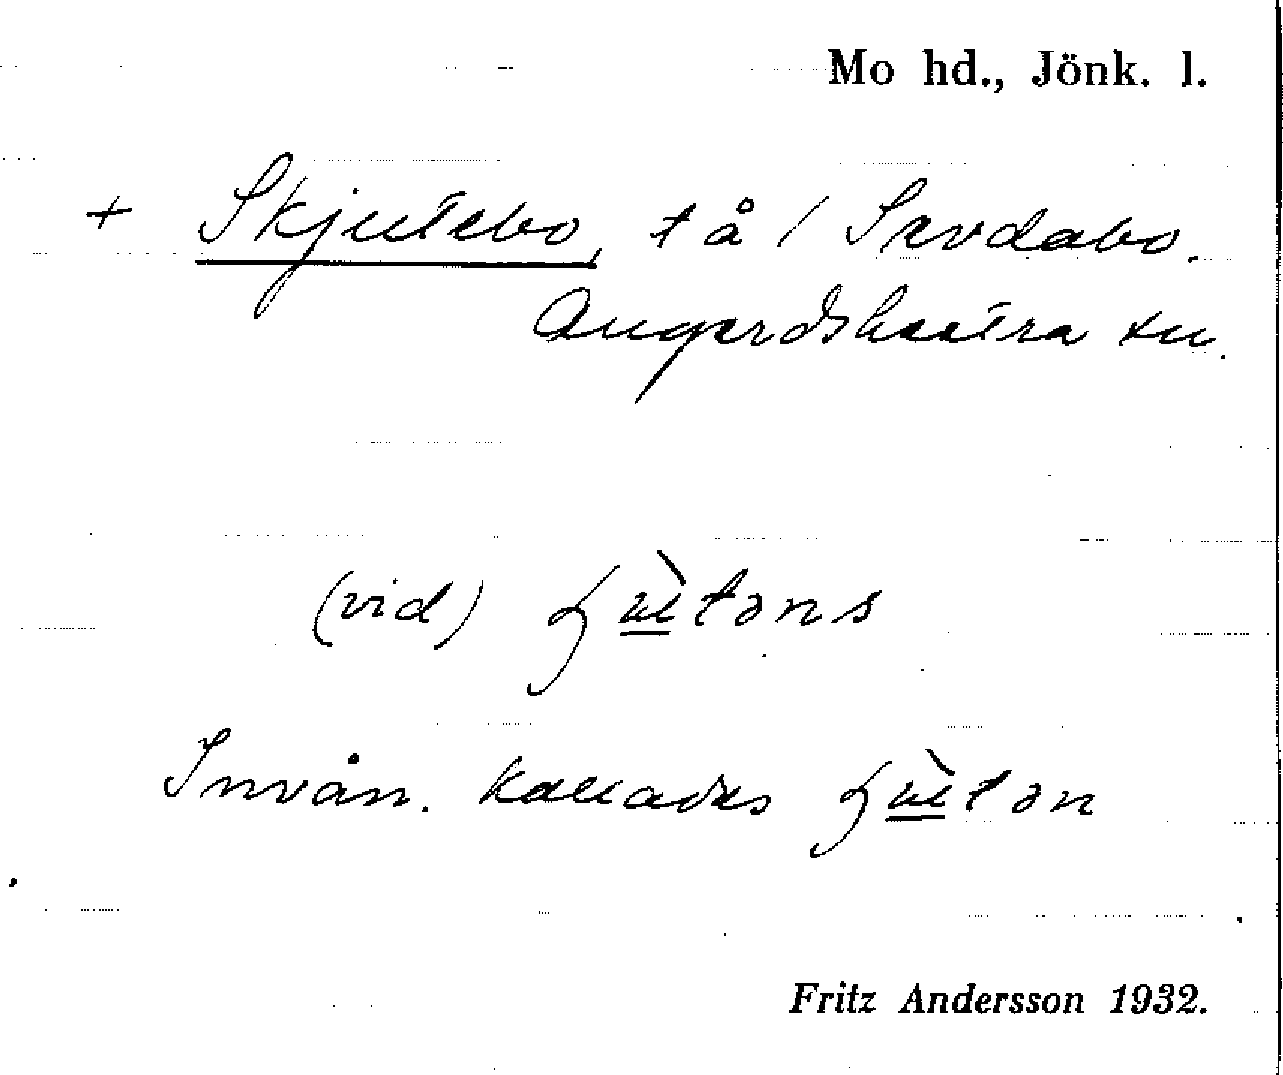 Mo hd., Jönk. l.
+ Skjutebo, t å / Servdabo.
Angerdshestra sn.
(vid) ʃù̲təns
Invån. kallades ʃù̲tən
Fritz Andersson 1932.